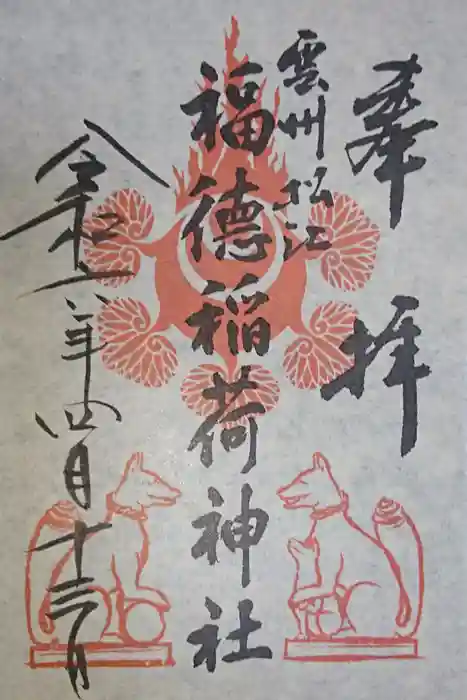 奉拝
雲州松江
福徳稲荷神社
令和六年四月十三日